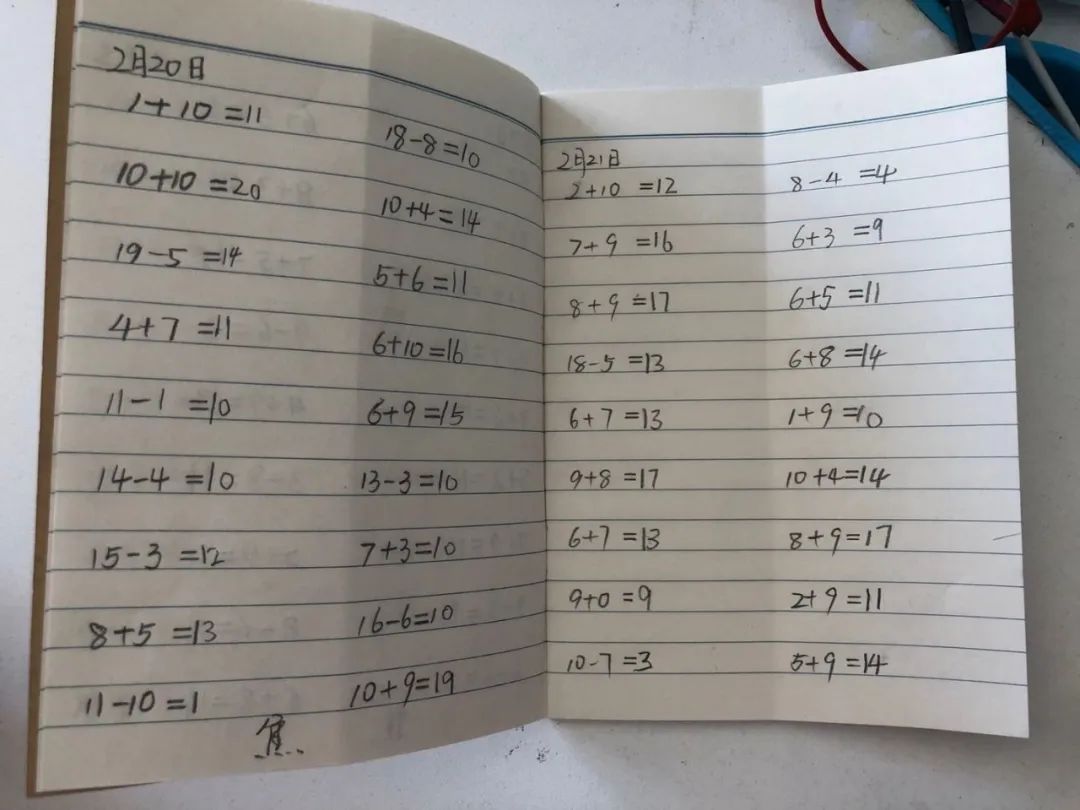 2月20日
1+10=11
10+10=20
19-5=14
4+7=11
11-1=10
14-4=10
15-3=12
8+5=13
11-10=1
18-8=10
10+4=14
5+6=11
6+10=16
6+9=15
13-3=10
7+3=10
16-6=10
10+9=19
焦
2月21日
2+10=12
7+9=16
8+9=17
18-5=13
6+7=13
9+8=17
6+7=13
9+0=9
10-7=3
8-4=4
6+3=9
6+5=11
6+8=14
1+9=10
10+4=14
8+9=17
2+9=11
5+9=14